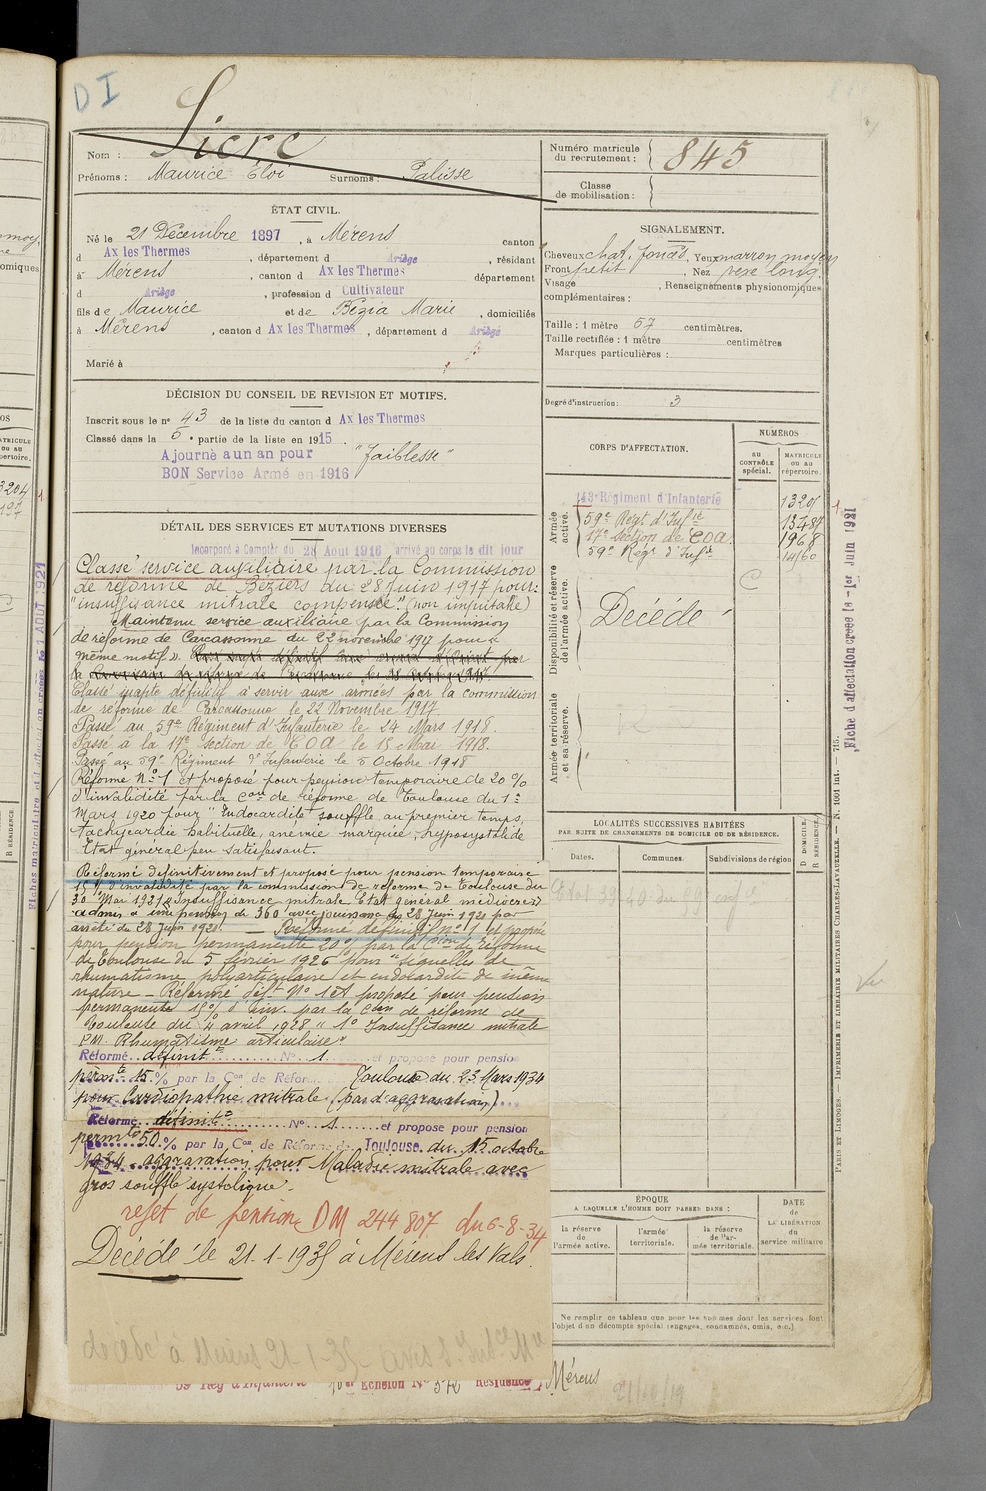 DI
Nom : Sicre
Prénoms : Maurice Éloi Surnoms : Palisse
Numéro matricule du recrutement : 845
Classe de mobilisation :
ÉTAT CIVIL.
Né le 21 Décembre 1897, à Mérens canton
d Ax les Thermes, département d Ariège, résidant
à Mérens, canton d Ax les Thermes département
d Ariège, profession d Cultivateur
fils de Maurice et de Bézia Marie, domiciliés
à Mérens, canton d Ax les Thermes, département d Ariège
Marié à
SIGNALEMENT.
Cheveux chat. foncé, Yeux marron moyen
Front petit, Nez vexe long.
Visage , Renseignements physionomiques
complémentaires :
Taille : 1 mètre 57 centimètres.
Taille rectifiée : 1 mètre centimètres
Marques particulières :
Degré d'instruction : 3
DÉCISION DU CONSEIL DE REVISION ET MOTIFS.
Inscrit sous le nº 43 de la liste du canton d Ax les Thermes
Classé dans la 5e partie de la liste en 1915.
Ajourné a un an pour "faiblesse"
BON Service Armé en 1916
CORPS D'AFFECTATION.
NUMÉROS
AU CONTRÔLE spécial.
MATRICULE ou au répertoire.
Armée active.
143e Régiment d'Infanterie
59e Régt d'Infie 13487
17e section de COA. 1968
59e Régt d'Infie 14160
Disponibilité et réserve de l'armée active.
Décédé
C
Armée territoriale et sa réserve.
DÉTAIL DES SERVICES ET MUTATIONS DIVERSES
Incorporé à Compter du 28 Aout 1916 arrivé au corps le dit jour
Classé service auxiliaire par la Commission
de réforme de Béziers du 28 juin 1917 pour:
"insuffisance mitrale compensée". (non imputable)
Maintenu service auxiliaire par la Commission
de réforme de Carcassonne du 22 novembre 1917 pour "
même motif ».
Classé inapte définitif à servir aux armées par la commission
de réforme de Carcassonne le 22 Novembre 1917.
Passé au 59e Régiment d'Infanterie le 24 Mars 1918.
Passé à la 17e section de COA le 15 Mai 1918.
Passé au 59e Régiment d'Infanterie le 5 Octobre 1918
Réformé Nº 1 et proposé pour pension temporaire de 20 %
d'invalidité par la Con de réforme de Toulouse du 1er
Mars 1920 pour "Endocardite souffle au premier temps,
tachycardie habituelle, anémie marquée, hyposystolide
Etat général peu satisfaisant.
Réformé définitivement et proposé pour pension temporaire
15 % d'invalidité par la commission de réforme de Toulouse du
30 Mai 1921 Insuffisance mitrale Etat général médiocre
admis à une pension de 360 avec jouissance du 28 Juin 1920 par
arrêté du 28 Juin 1921. — Réformé définitif nº 1 et proposé
pour pension permanente 20 % par la Con de Réforme
de Toulouse du 5 février 1926 pour "séquelles de
rhumatisme polyarticulaire et endocardite de même
nature — Réformé déft Nº 1 et proposé pour pension
permanente 15 % d'inv. par la Con de réforme de
Toulouse du 4 avril 1928 " 1º Insuffisance mitrale
P.M. Rhumatisme articulaire"
Réformé définitt Nº 1 et proposé pour pension
permte 15 % par la Con de Réforme Toulouse du 23 Mars 1934
pour Cardiopathie mitrale (pas d'aggravation)
Réformé définitt Nº 1 et proposé pour pension
permte 50 % par la Con de Réforme de Toulouse du 15 octobre
1934 aggravation pour Maladie mitrale avec
gros souffle systolique.
rejet de pension DM 244 807 du 6-8-34
Décédé le 21-1-1935 à Mérens les Vals.
décédé à Mérens 21-1-35
59 Rég d'Infanterie Echelon Nº 576 Résidence Mérens
LOCALITÉS SUCCESSIVES HABITÉES
PAR SUITE DE CHANGEMENTS DE DOMICILE OU DE RÉSIDENCE.
Dates.
Communes.
Subdivisions de région
D DOMICILE.
R RÉSIDENCE.
ÉPOQUE
A LAQUELLE L'HOMME DOIT PASSER DANS :
la réserve de l'armée active.
l'armée territoriale.
la réserve de l'armée territoriale.
DATE de LA LIBÉRATION du service militaire
Ne remplir ce tableau que pour les hommes dont les services font
l'objet d'un décompte spécial (engagés, condamnés, omis, etc.)
Fiche d'affectation créée le 1er Juin 1921
PARIS ET LIMOGES. — IMPRIMERIE ET LIBRAIRIE MILITAIRES CHARLES-LAVAUZELLE. — N. 1001 int. — 715.
Vu